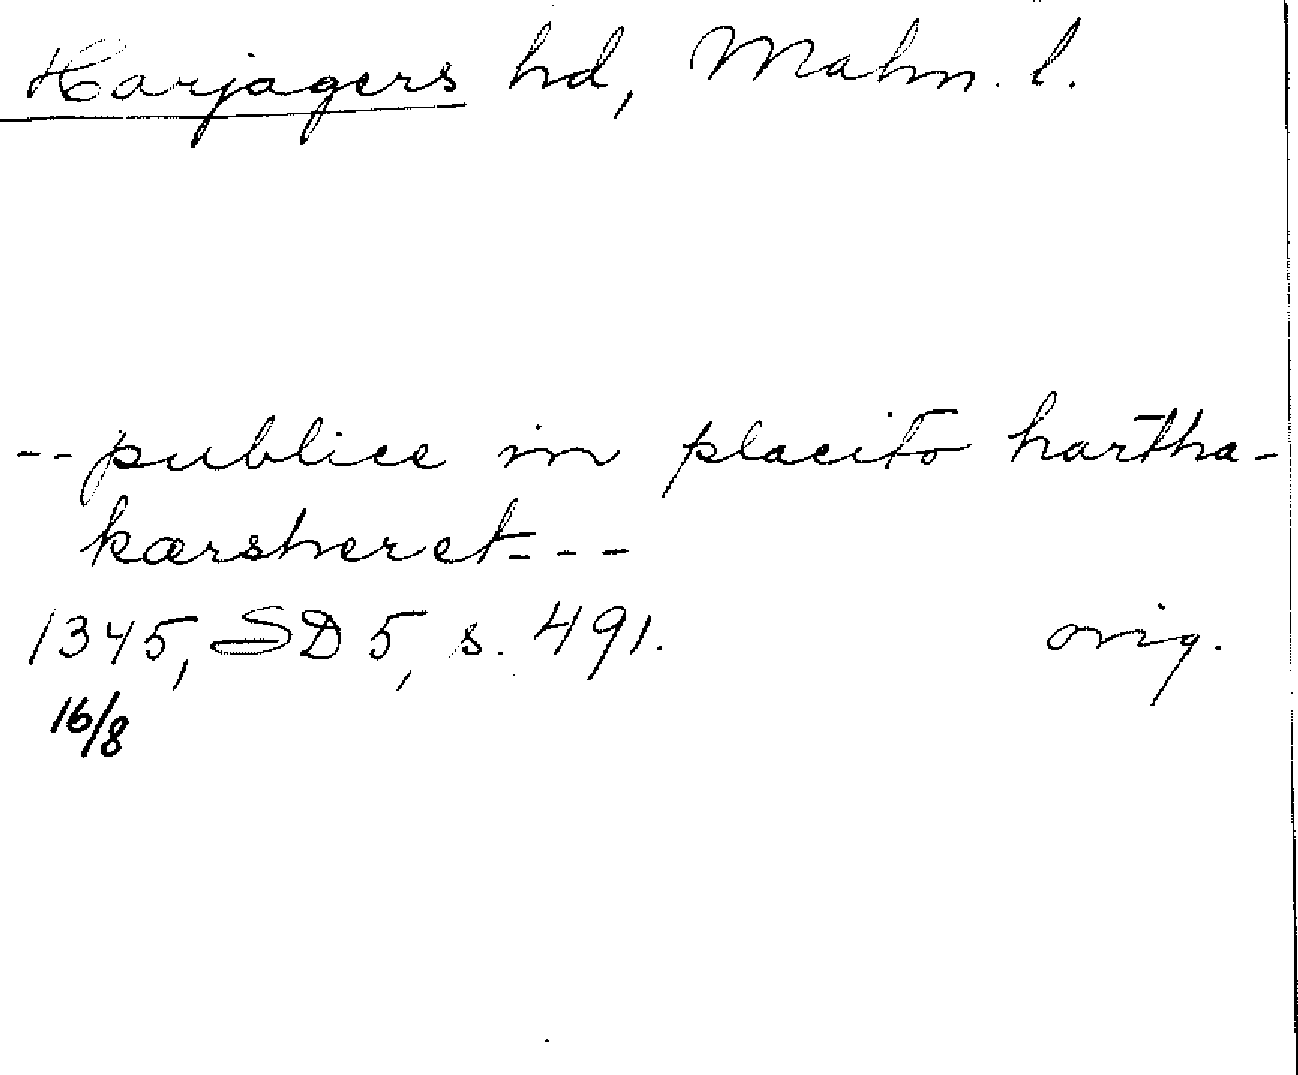 Harjagers hd, Malm. l.
-- publice in placito hartha-
kærsheret---
1345, SD 5, s. 491. orig.
16/8